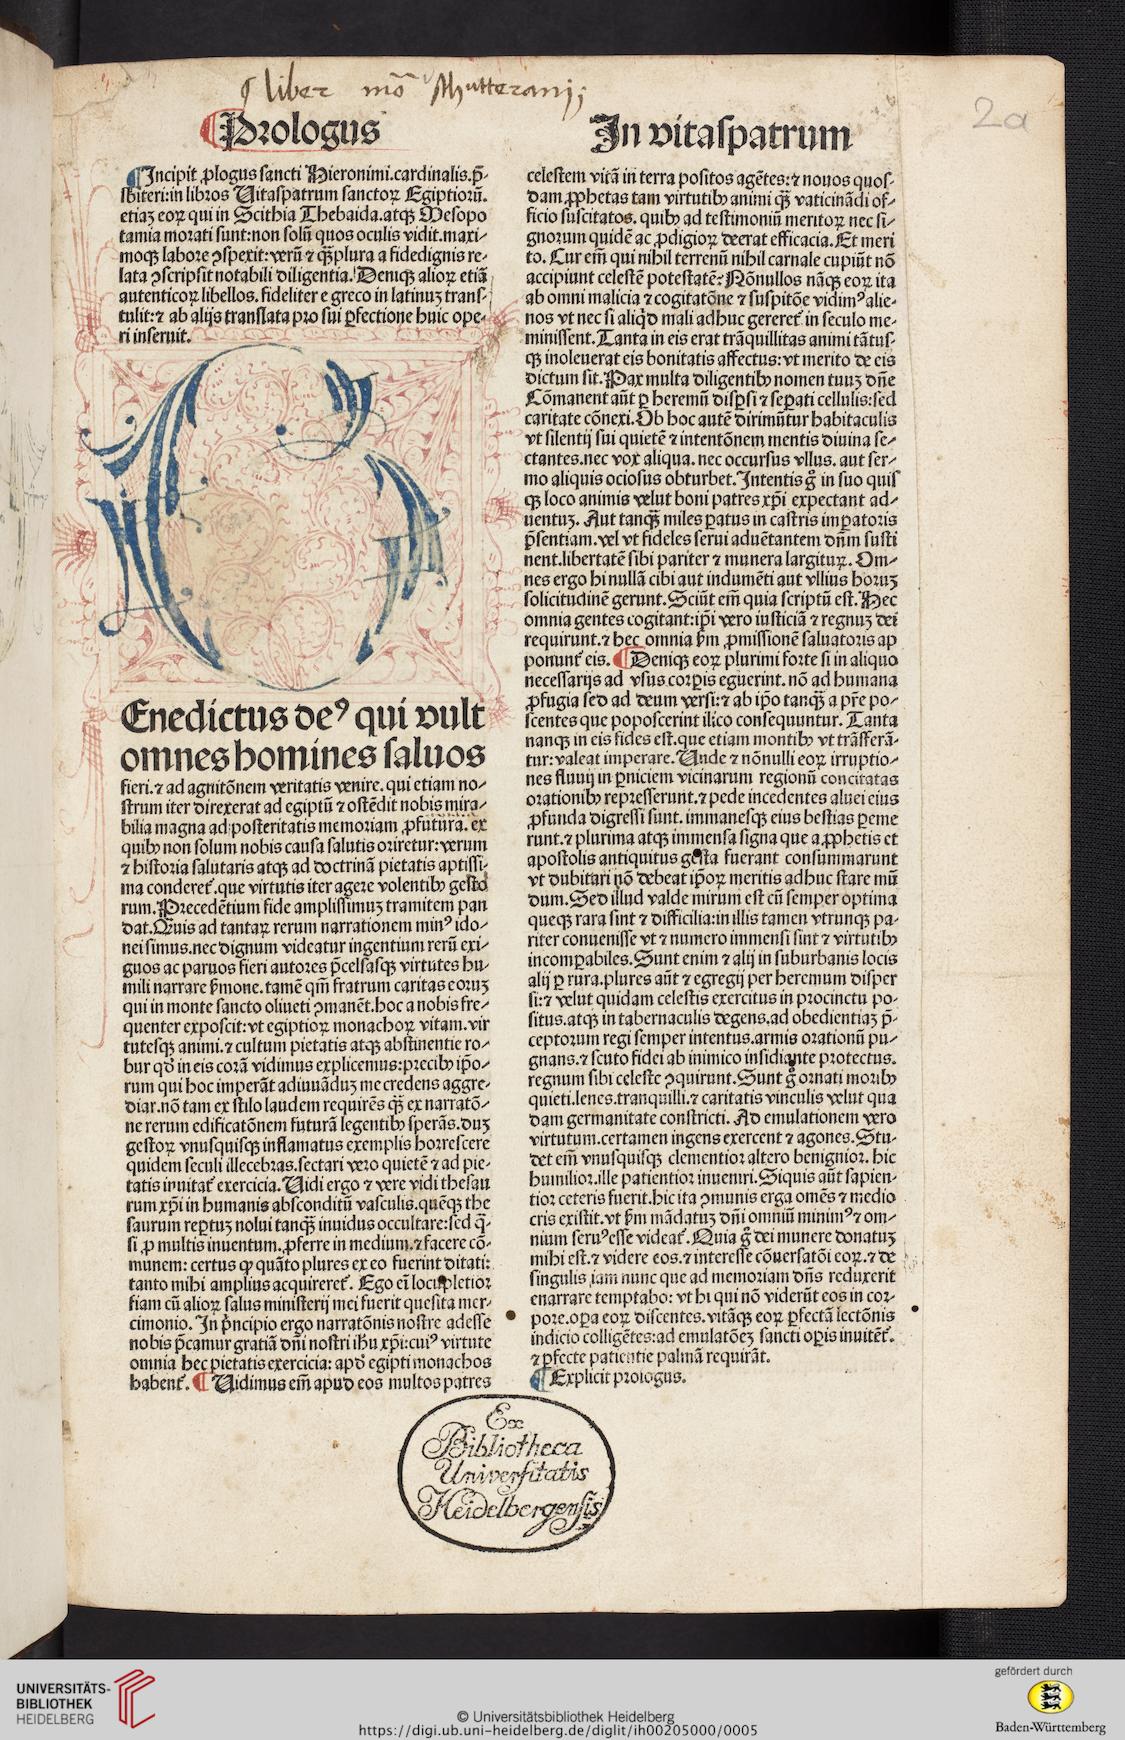 liber mo͂ Schutterani;
Prologus
In vitaspatrum
2a
¶Incipit ꝓlogus sancti Hieronimi.cardinalis.p̄-
sbiteri:in libros Uitaspatrum sanctoꝝ Egiptiorū.
etiaꝫ eoꝝ qui in Scithia Thebaida.atqꝫ Mesopo
tamia morati sunt:non solū quos oculis vidit.maxi-
moqꝫ labore ꝯspexit:verū ⁊ qꝫ̄plura a fidedignis re-
lata ꝯscripsit notabili diligentia. Deniqꝫ alioꝝ etiā
autenticoꝝ libellos. fideliter e greco in latinuꝫ trans-
tulit:⁊ ab alijs translata pro sui ꝑfectione huic ope-
ri inseruit.
B
Enedictus deꝰ qui vult
omnes homines saluos
fieri.⁊ ad agnitōnem veritatis venire. qui etiam no-
strum iter direxerat ad egiptū ⁊ ostēdit nobis mira-
bilia magna ad posteritatis memoriam ꝓfutura. ex
quibꝫ non solum nobis causa salutis oriretur:verum
⁊ historia salutaris atqꝫ ad doctrinā pietatis aptissi-
ma conderet᷑.que virtutis iter agere volentibꝫ gesto
rum.Precedētium fide amplissimuꝫ tramitem pan
dat.Quis ad tantaꝝ rerum narrationem minꝰ ido-
nei simus.nec dignum videatur ingentium rerū exi-
guos ac paruos fieri autores p̄celsasqꝫ virtutes hu-
mili narrare ẜmone. tamē qm̄ fratrum caritas eoruꝫ
qui in monte sancto oliueti ꝯmanēt.hoc a nobis fre-
quenter exposcit:vt egiptioꝝ monachoꝝ vitam.vir
tutesqꝫ animi.⁊ cultum pietatis atqꝫ abstinentie ro-
bur qd̓ in eis corā vidimus explicemus:precibꝫ ip̄o-
rum qui hoc imperāt adiuuāduꝫ me credens aggre-
diar.nō tam ex stilo laudem requirēs qꝫ̄ ex narratō-
ne rerum edificatōnem futurā legentibꝫ sperās.duꝫ
gestoꝝ vnusquisqꝫ inflamatus exemplis horrescere
quidem seculi illecebras.sectari vero quietē ⁊ ad pie-
tatis inuitat᷑ exercicia.Uidi ergo ⁊ vere vidi thesau
rum xp̄i in humanis absconditū vasculis.quēqꝫ the
saurum reꝑtuꝫ nolui tanqꝫ̄ inuidus occultare:sed q̄-
si ꝓ multis inuentum.ꝓferre in medium.⁊ facere cō-
munem: certus ꝙ quāto plures ex eo fuerint ditati:
tanto mihi amplius acquireret᷑. Ego eī locupletior
fiam cū alioꝝ salus ministerij mei fuerit quesita mer-
cimonio. In p̓ncipio ergo narratōnis nostre adesse
nobis p̄camur gratiā dn̄i nostri ihu xp̄i:cuiꝰ virtute
omnia hec pietatis exercicia: apd̓ egipti monachos
habent᷑. ¶ Uidimus em̄ apud eos multos patres
celestem vitā in terra positos agētes:⁊ nouos quos-
dam ꝓphetas tam virtutibꝫ animi qꝫ̄ vaticināꝺi of-
ficio suscitatos. quibꝫ ad testimoniū meritoꝝ nec si-
gnorum quidē ac ꝓdigioꝝ deerat efficacia.Et meri
to. Cur em̄ qui nihil terrenū nihil carnale cupiūt nō
accipiunt celestē potestatē? Nōnullos nāqꝫ eoꝝ ita
ab omni malicia ⁊ cogitatōne ⁊ suspitōe vidimꝰ alie-
nos vt nec si aliqd̓ mali adhuc gereret᷑ in seculo me-
minissent.Tanta in eis erat trāquillitas animi tātus-
qꝫ inoleuerat eis bonitatis affectus:vt merito de eis
dictum sit.Pax multa diligentibꝫ nomen tuuꝫ dn̄e
Cōmanent aūt ꝑ heremū disꝑsi ⁊ seꝑati cellulis:sed
caritate cōnexi.Ob hoc autē dirimūtur habitaculis
vt silentij sui quietē ⁊ intentōnem mentis diuina se-
ctantes.nec vox aliqua. nec occursus vllus. aut ser-
mo aliquis ociosus obturbet.Intentis g̊ in suo quis
qꝫ loco animis velut boni patres xp̄i expectant ad-
uentuꝫ. Aut tanqꝫ̄ miles ꝑatus in castris imꝑatoris
p̄sentiam.vel vt fideles serui aduētantem dn̄m susti
nent.libertatē sibi pariter ⁊ munera largituꝝ. Om-
nes ergo hi nullā cibi aut indumēti aut vllius horuꝫ
solicitudinē gerunt.Sciūt em̄ quia scriptū est.Hec
omnia gentes cogitant:ip̄i vero iusticiā ⁊ regnuꝫ dei
requirunt.⁊ hec omnia ẜm ꝓmissionē saluatoris ap
ponunt᷑ eis. ¶Deniqꝫ eoꝝ plurimi forte si in aliquo
necessarijs ad vsus.corꝑis eguerint. nō ad humana
ꝓfugia sed ad deum versi:⁊ ab ip̄o tanqꝫ̄ a pr̄e po-
scentes que poposcerint ilico consequuntur. Tanta
nanqꝫ in eis fides est.que etiam montibꝫ vt trāsferā-
tur:valeat imperare.Unde ⁊ nōnulli eoꝝ irruptio-
nes fluuij in ꝑniciem vicinarum regionū concitatas
orationibꝫ represserunt.⁊ pede incedentes aluei eius
ꝓfunda digressi sunt. immanesqꝫ eius bestias ꝑeme
runt.⁊ plurima atqꝫ immensa signa que a ꝓphetis et
apostolis antiquitus gesta fuerant consummarunt
vt dubitari nō debeat ip̄oꝝ meritis adhuc stare mū
dum.Sed illud valde mirum est cū semper optima
queqꝫ rara sint ⁊ difficilia:in illis tamen vtrunqꝫ pa-
riter conuenisse vt ⁊ numero immensi sint ⁊ virtutibꝫ
incomꝑabiles.Sunt enim ⁊ alij in suburbanis locis
alij ꝑ rura.plures aūt ⁊ egregij per heremum disper
si:⁊ velut quidam celestis exercitus in procinctu po-
situs.atqꝫ in tabernaculis degens.ad obedientiaꝫ p̄-
ceptorum regi semper intentus.armis orationū pu-
gnans.⁊ scuto fidei ab inimico insidiante protectus.
regnum sibi celeste ꝯquirunt.Sunt g̊ ornati moribꝫ
quieti.lenes.tranquilli.⁊ caritatis vinculis velut qua
dam germanitate constricti. Ad emulationem vero
virtutum.certamen ingens exercent ⁊ agones.Stu-
det em̄ vnusquisqꝫ clementior altero benignior. hic
humilior.ille patientior inueniri.Siquis aūt sapien-
tior ceteris fuerit.hic ita ꝯmunis erga omēs ⁊ medio
cris existit.vt ẜm mādatuꝫ dn̄i omniū minimꝰ ⁊ om-
nium seruꝰ esse videat᷑.Quia g̊ dei munere donatuꝫ
mihi est.⁊ videre eos.⁊ interesse cōuersatōi eoꝝ.⁊ de
singulis iam nunc que ad memoriam dn̄s reduxerit
enarrare temptabo: vt hi qui nō viderūt eos in cor-
pore.oꝑa eoꝝ discentes. vitāqꝫ eoꝝ ꝑfectā lectōnis
indicio colligētes:ad emulatōeꝫ sancti oꝑis inuitēt᷑.
⁊ ꝑfecte patientie palmā requirāt.
¶Explicit prologus.
Ex
Bibliotheca
Universitatis
Heidelbergensis
UNIVERSITÄTS-
BIBLIOTHEK
HEIDELBERG
© Universitätsbibliothek Heidelberg
https://digi.ub.uni-heidelberg.de/diglit/ih00205000/0005
gefördert durch
Baden-Württemberg